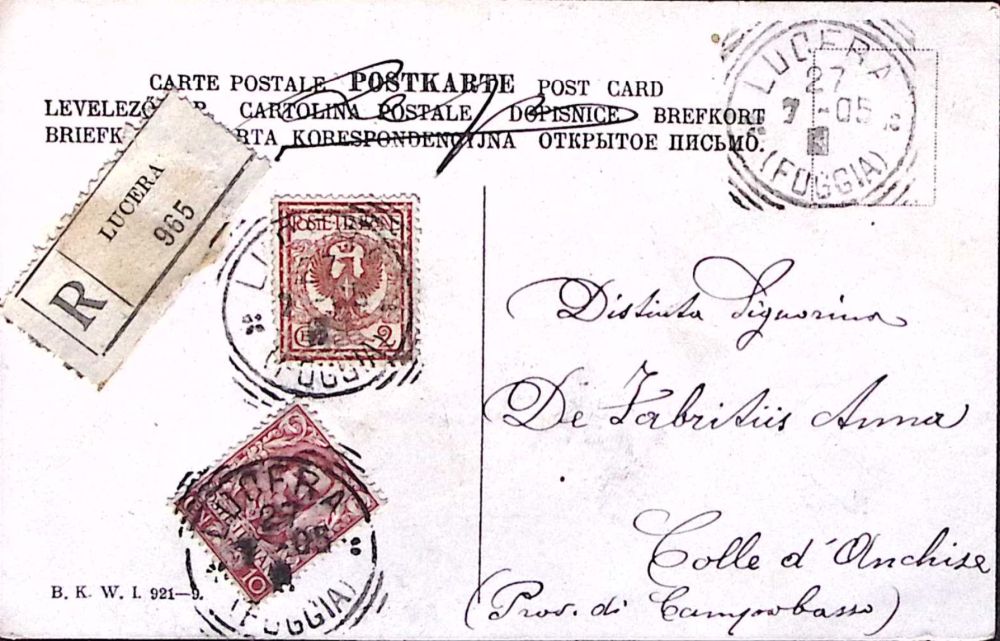 CARTE POSTALE POSTKARTE POST CARD
LEVELEZŐ R. CARTOLINA POSTALE DOPISNICE BREFKORT
BRIEFK RTA KORESPONDENCYJNA ОТКРЫТОЕ ПИСЬМО.
LUCERA
27
7 -05
(FOGGIA)
R
LUCERA
965
POSTE ITALIANE
2
(FOGGIA)
Distinta Signorina
De Fabritiis Anna
Colle d'Anchise
(Prov. di Campobasso)
LUCERA
27
-05
10
(FOGGIA)
B. K. W. I. 921—9.